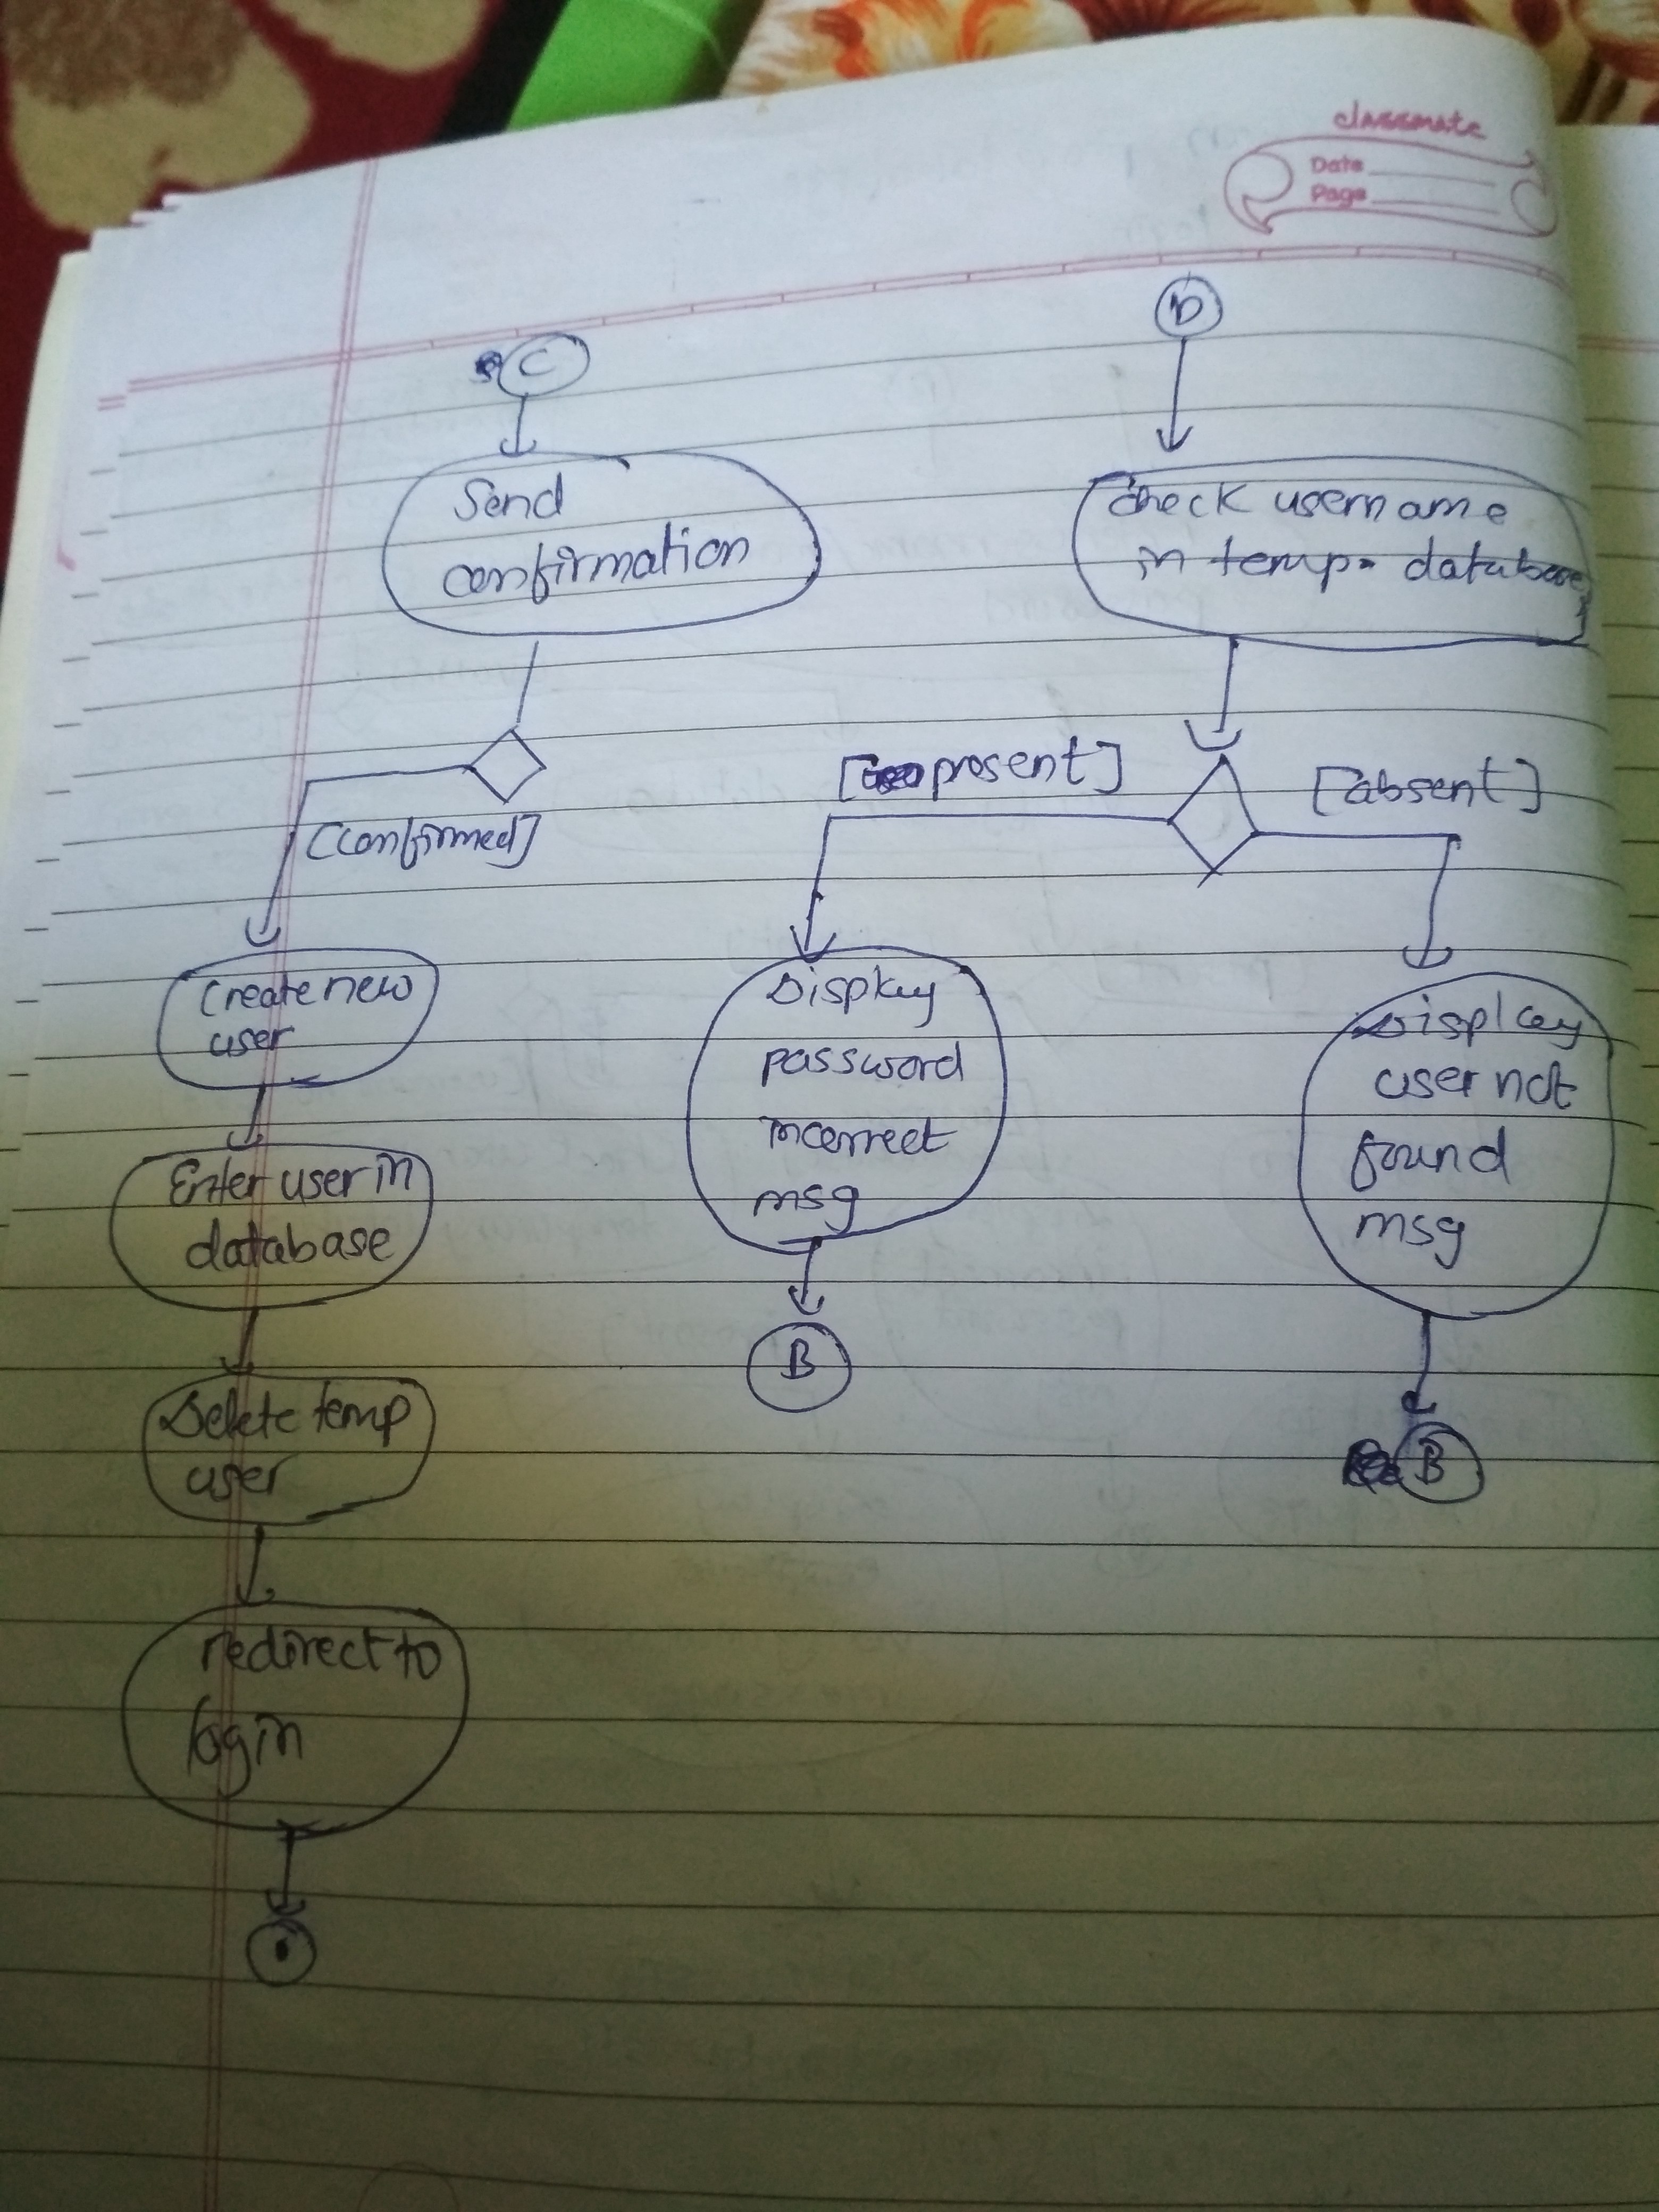 classmate
Date
Page
C
Send
confirmation
[confirmed]
Create new
user
Enter user in
database
Delete temp
user
redirect to
login
D
Check username
in temp. database
[present]
[absent]
Display
password
incorrect
msg
B
Display
user not
found
msg
B